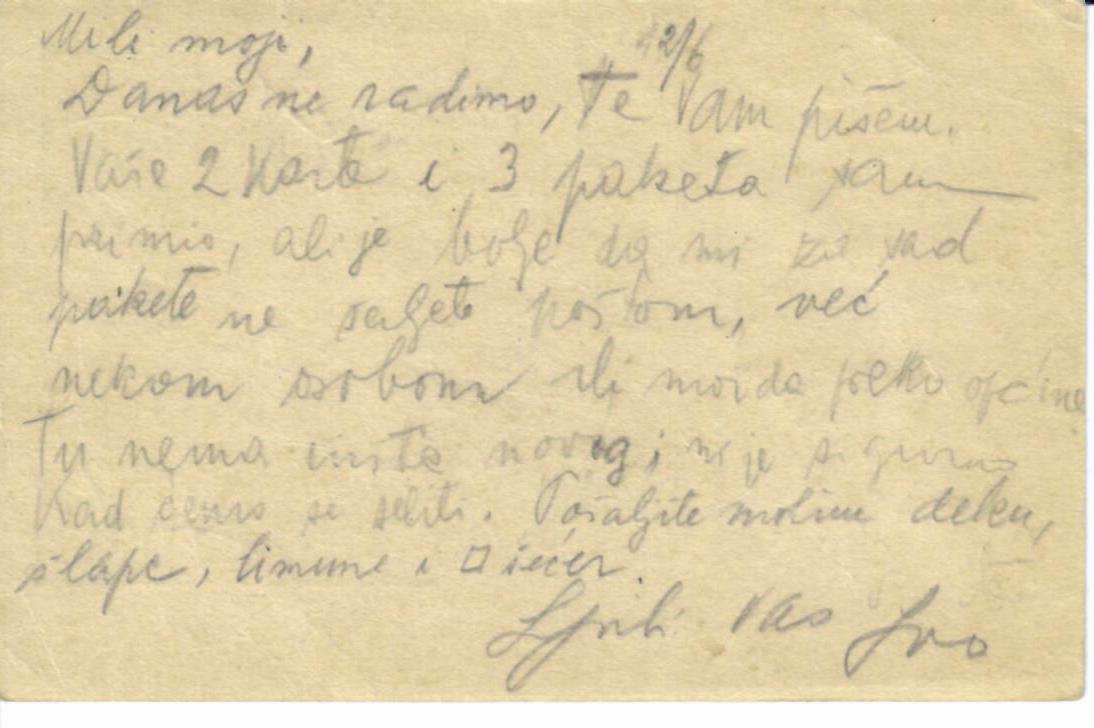 Mili moji,
12/6
Danas ne radimo, te Vam pišem.
Vaše 2 karte i 3 paketa sam
primio, ali je bolje da mi za sad
pakete ne šaljete poštom, već
nekom osobom ili možda preko općine
Tu nema ništa novog; nije sigurno
kad ćemo se seliti. Pošaljite molim deku,
šlape, limune i □ šećer.
Ljubi Vas Ivo